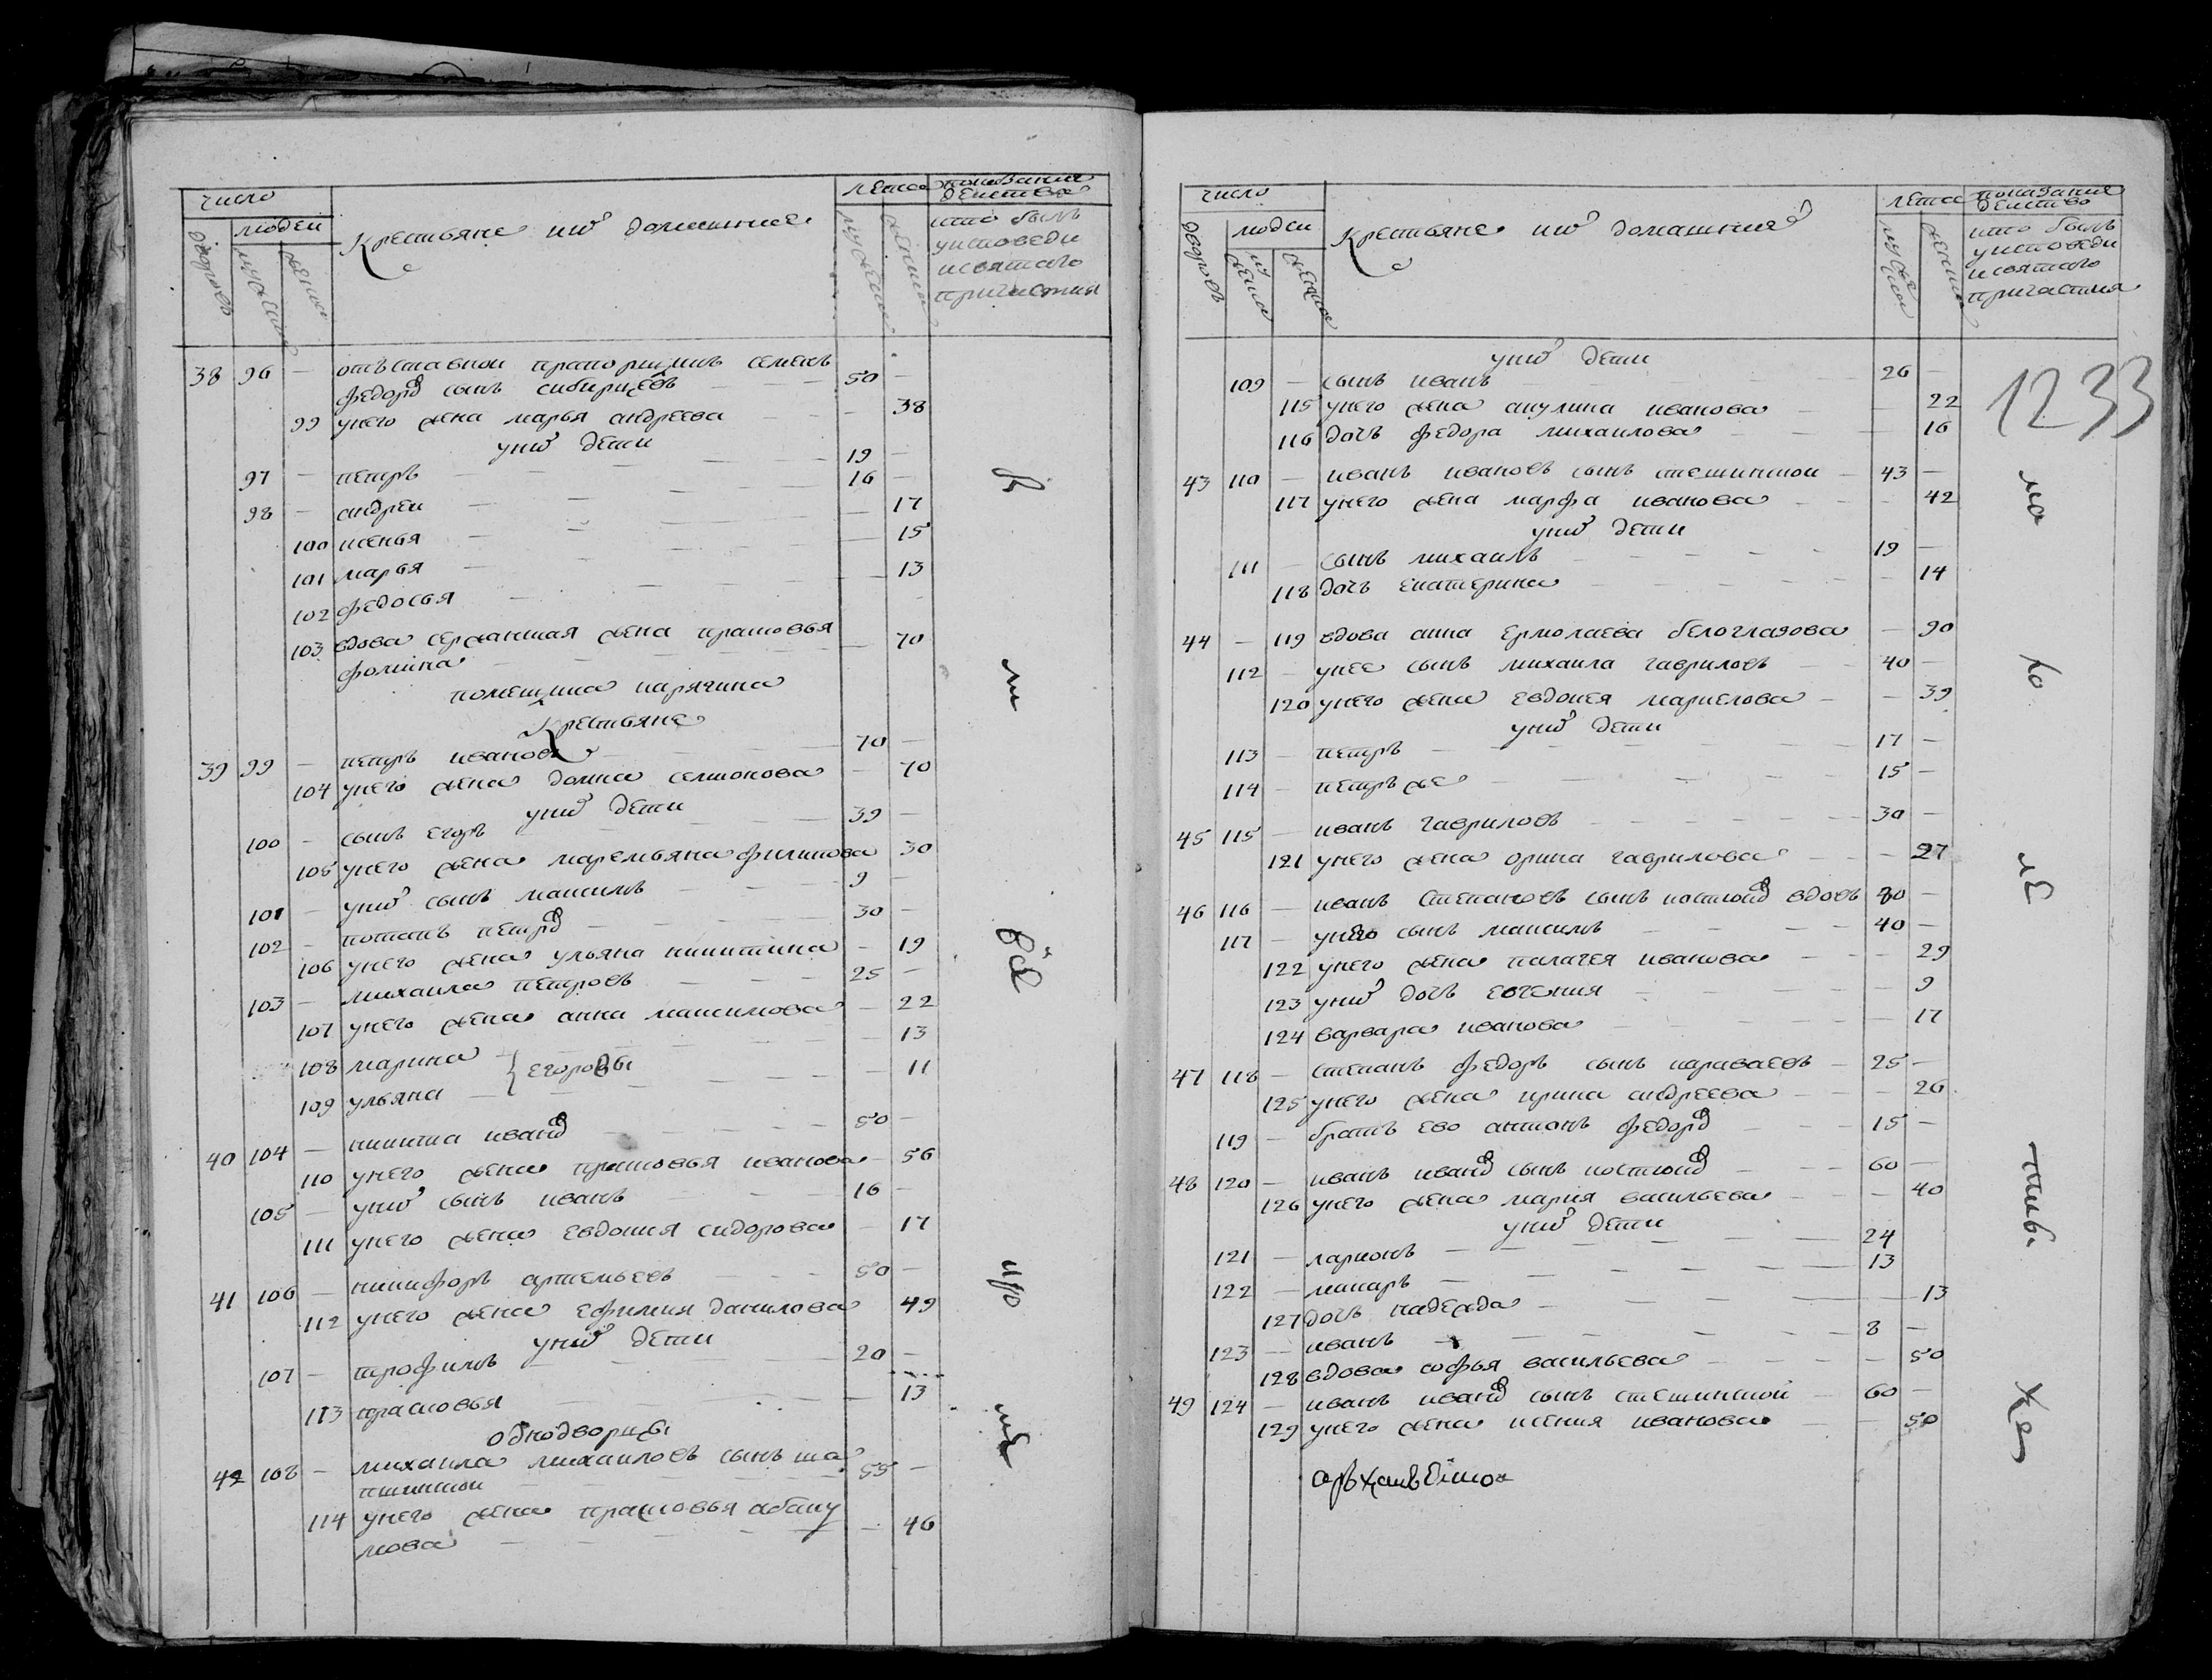 число
людей
дворовъ
мужска
женска
Крестьяне ихъ домашние
лета
мужеска
женска
показание
действа
кто былъ
уисповеди
исвятаго
причастия
38 96 — отъставнои прапорщикъ семенъ
федоровъ сынъ сибирцевъ 50 —
99 унего жена марья андреева — 38
унихъ дети
97 — петръ 19 —
98 — андреи 16 —
100 ксенья — 17
101 марья — 15
102 федосья — 13
103 вдова сержанская жена прасковья
фомина — 70
помещика карякина
Крестьяне
39 99 — петръ ивановъ 70 —
104 унего жена домна селионова — 70
унихъ дети
100 — сынъ егоръ 39 —
105 унего жена маремьяна филипова 30
101 — унихъ сынъ максимъ 9 —
102 — потапъ петровъ 30 —
106 унего жена ульяна никитина — 19
103 — михаила петровъ 25 —
107 унего жена анна максимова — 22
108 марина — 13
егоровы
109 ульяна — 11
40 104 — никита ивановъ 50 —
110 унего жена прасковья иванова — 56
105 — унихъ сынъ иванъ 16 —
111 унего жена евдокия сидорова — 17
41 106 — никифоръ артемьевъ 50 —
112 унего жена ефимия данилова 49
унихъ дети
107 — трофимъ 20 —
113 прасковья — 13
однодворцы
42 108 — михаила михаиловъ сынъ ша
пшинскои 55 —
114 унего жена прасковья абаку
мова — 46
число
людеи
дворовъ
мужеска
женска
Крестьяне ихъ домашния
лета
мужеска
женска
показание
действо
кто былъ
уисповеди
исвятаго
причастия
1233
унихъ дети
109 — сынъ иванъ 26 —
115 унего жена акулина иванова — 22
116 дочь федора михаилова — 16
43 110 — иванъ ивановъ сынъ тешинскои — 43 —
117 унего жена марфа иванова — 42
унихъ дети
111 — сынъ михаилъ 19 —
118 дочь екатерина — 14
44 — 119 вдова анна ермолаева белоглазова — 90
112 — унее сынъ михаила гавриловъ 40 —
120 унего жена евдокея маркелова — 39
унихъ дети
113 — петръ 17 —
114 — петръ же 15 —
45 115 — иванъ гавриловъ 30 —
121 унего жена орина гаврилова — 27
46 116 — иванъ степановъ сынъ костюковъ вдовъ 80 —
117 — унего сынъ максимъ 40 —
122 унего жена палагея иванова — 29
123 унихъ дочь евгения — 9
124 варвара иванова — 17
47 118 — степанъ федоръ сынъ караваевъ — 25 —
125 унего жена ирина андреева — 26
119 — братъ ево антонъ федоровъ 15 —
48 120 — иванъ ивановъ сынъ костюковъ 60 —
126 унего жена мария васильева — 40
унихъ дети
121 — ларионъ 24
122 — макаръ 13
127 дочь надежда — 13
123 — иванъ 8 —
128 вдова софья васильева — 50
49 124 — иванъ ивановъ сынъ тешинскои 60 —
129 унего жена ксения иванова 50